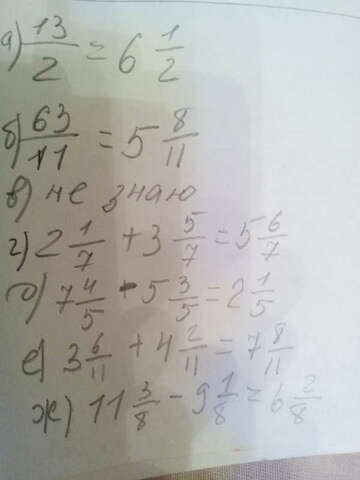 а) 13/2 = 6 1/2
б) 63/11 = 5 8/11
в) не знаю
г) 2 1/7 + 3 5/7 = 5 6/7
д) 7 4/5 - 5 3/5 = 2 1/5
е) 3 6/11 + 4 2/11 = 7 8/11
ж) 11 3/8 - 9 1/8 = 6 2/8